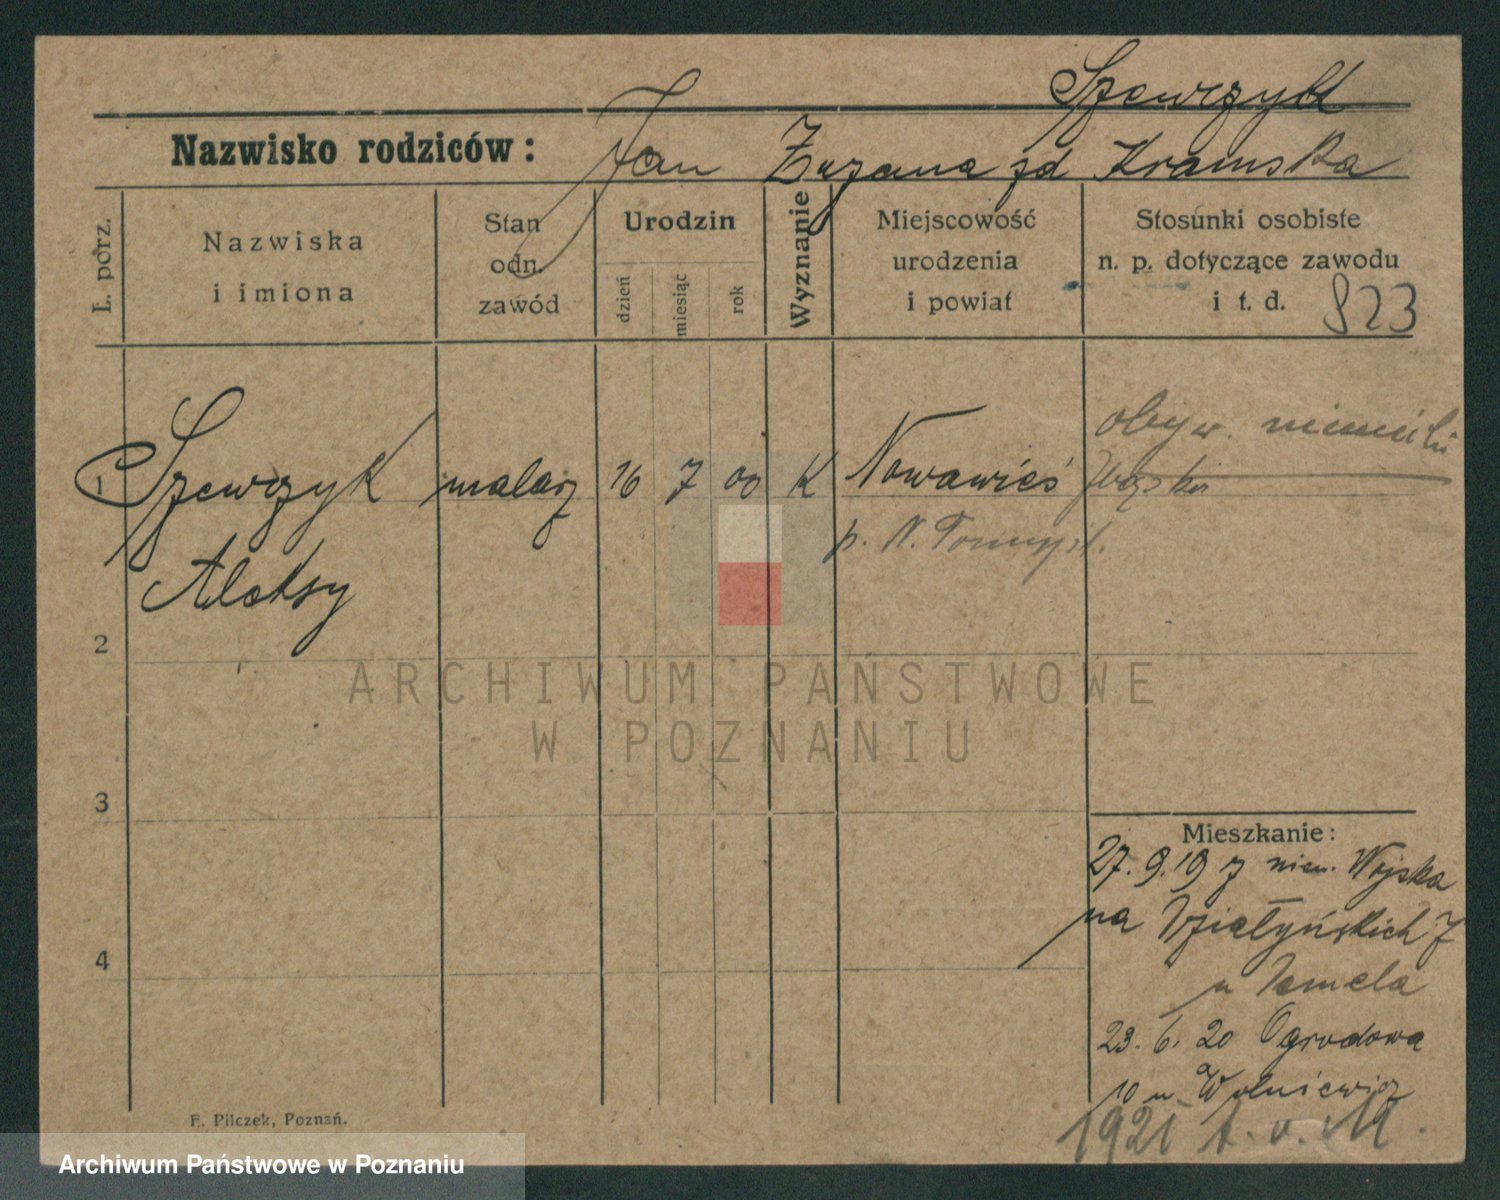 Szewczyk
Nazwisko rodziców: Jan Zuzanna zd Kramska
L. porz.
Nazwiska i imiona
Stan odn. zawód
Urodzin
dzień miesiąc rok
Wyznanie
Miejscowość urodzenia i powiat
Stosunki osobiste n. p. dotyczące zawodu i t. d. 823
1 Szewczyk malarz 16 7 00 K Nowawieś
obyw. niemiecki
Zbąski
p. N. Tomysl.
Aleksy
2
3
4
Mieszkanie:
27. 9. 19 z niem. Wojska
na Działyńskich 7
u
23. 6. 20 Ogrodowa
10 u. Wolniewicz
1921
F. Pilczek, Poznań.
ARCHIWUM PAŃSTWOWE
W POZNANIU
Archiwum Państwowe w Poznaniu